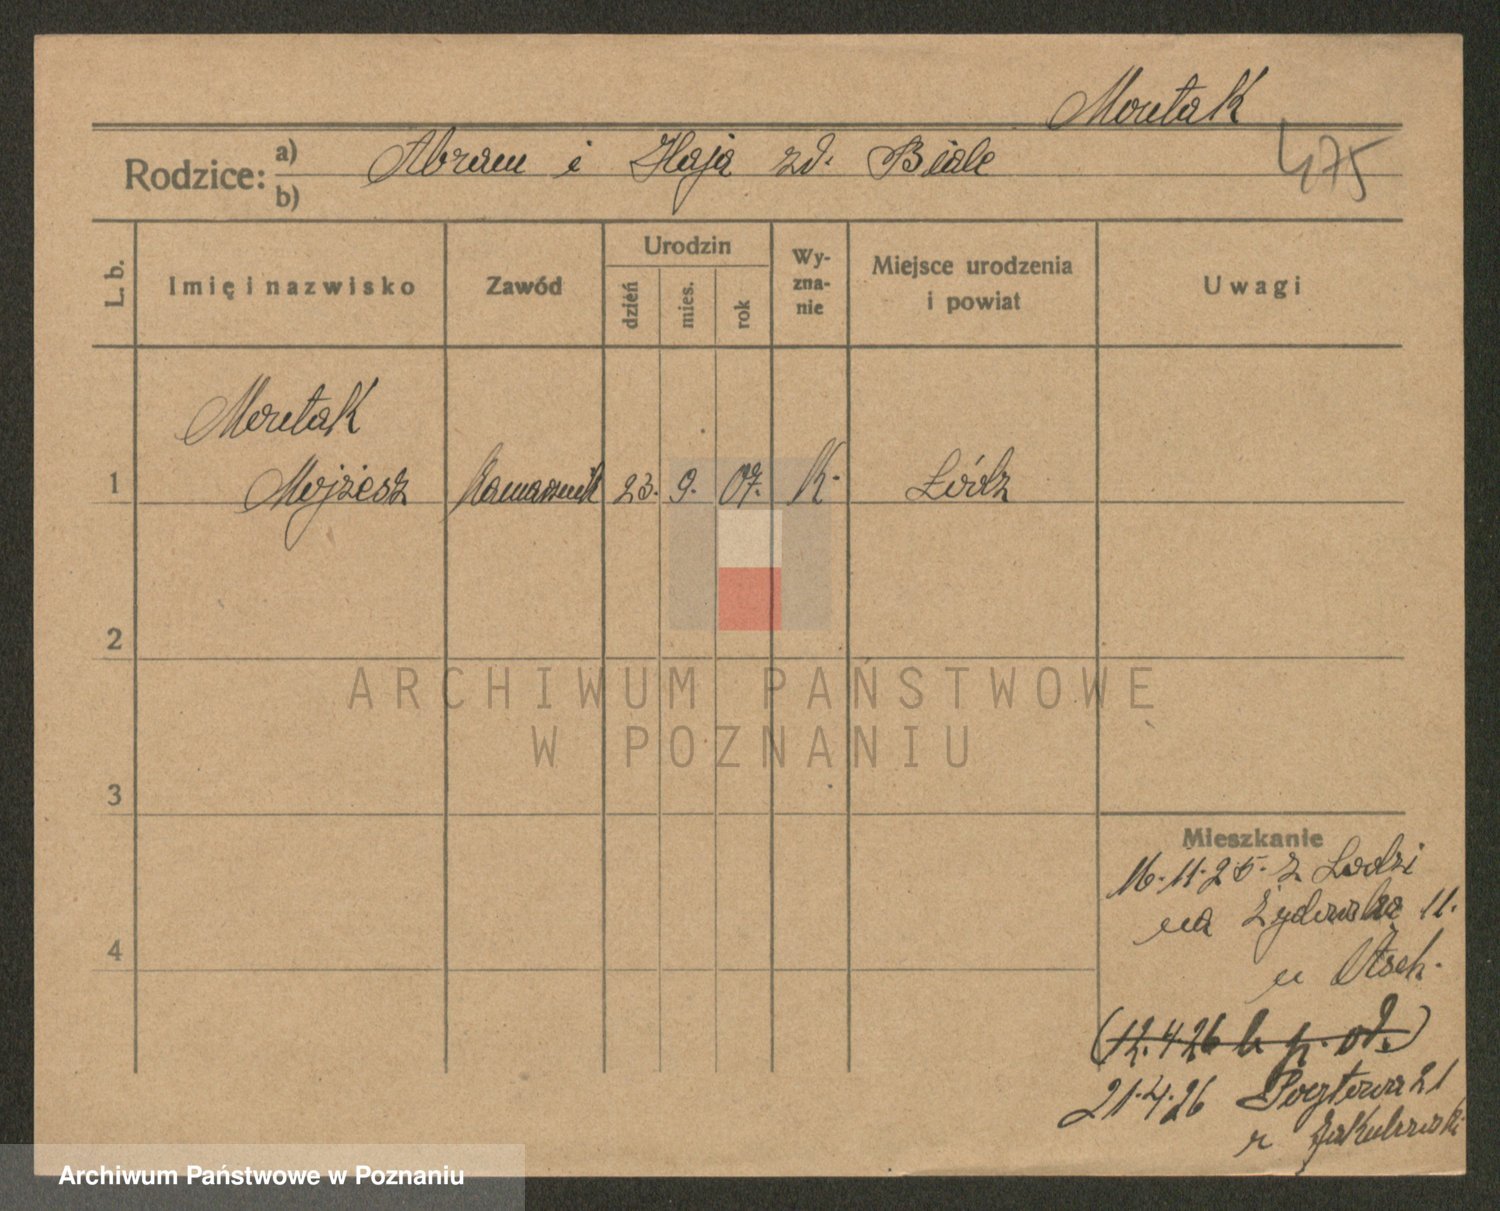 Moutak
Rodzice: a) b) Abram i Haja zd. Biale 475
L. b. Imię i nazwisko Zawód Urodzin dzień mies. rok Wy-zna-nie Miejsce urodzenia i powiat Uwagi
Moutak
1 Mojżesz Kamasznik 23. 9. 07. K. Łódz
2
3
4
Mieszkanie
16.11.25. z Lodzi
na Żydowska 11.
u
(12.4.26 b. p. od.)
21.4.26 Pocztowa 21
Jakubowski
ARCHIWUM PAŃSTWOWE
W POZNANIU
Archiwum Państwowe w Poznaniu